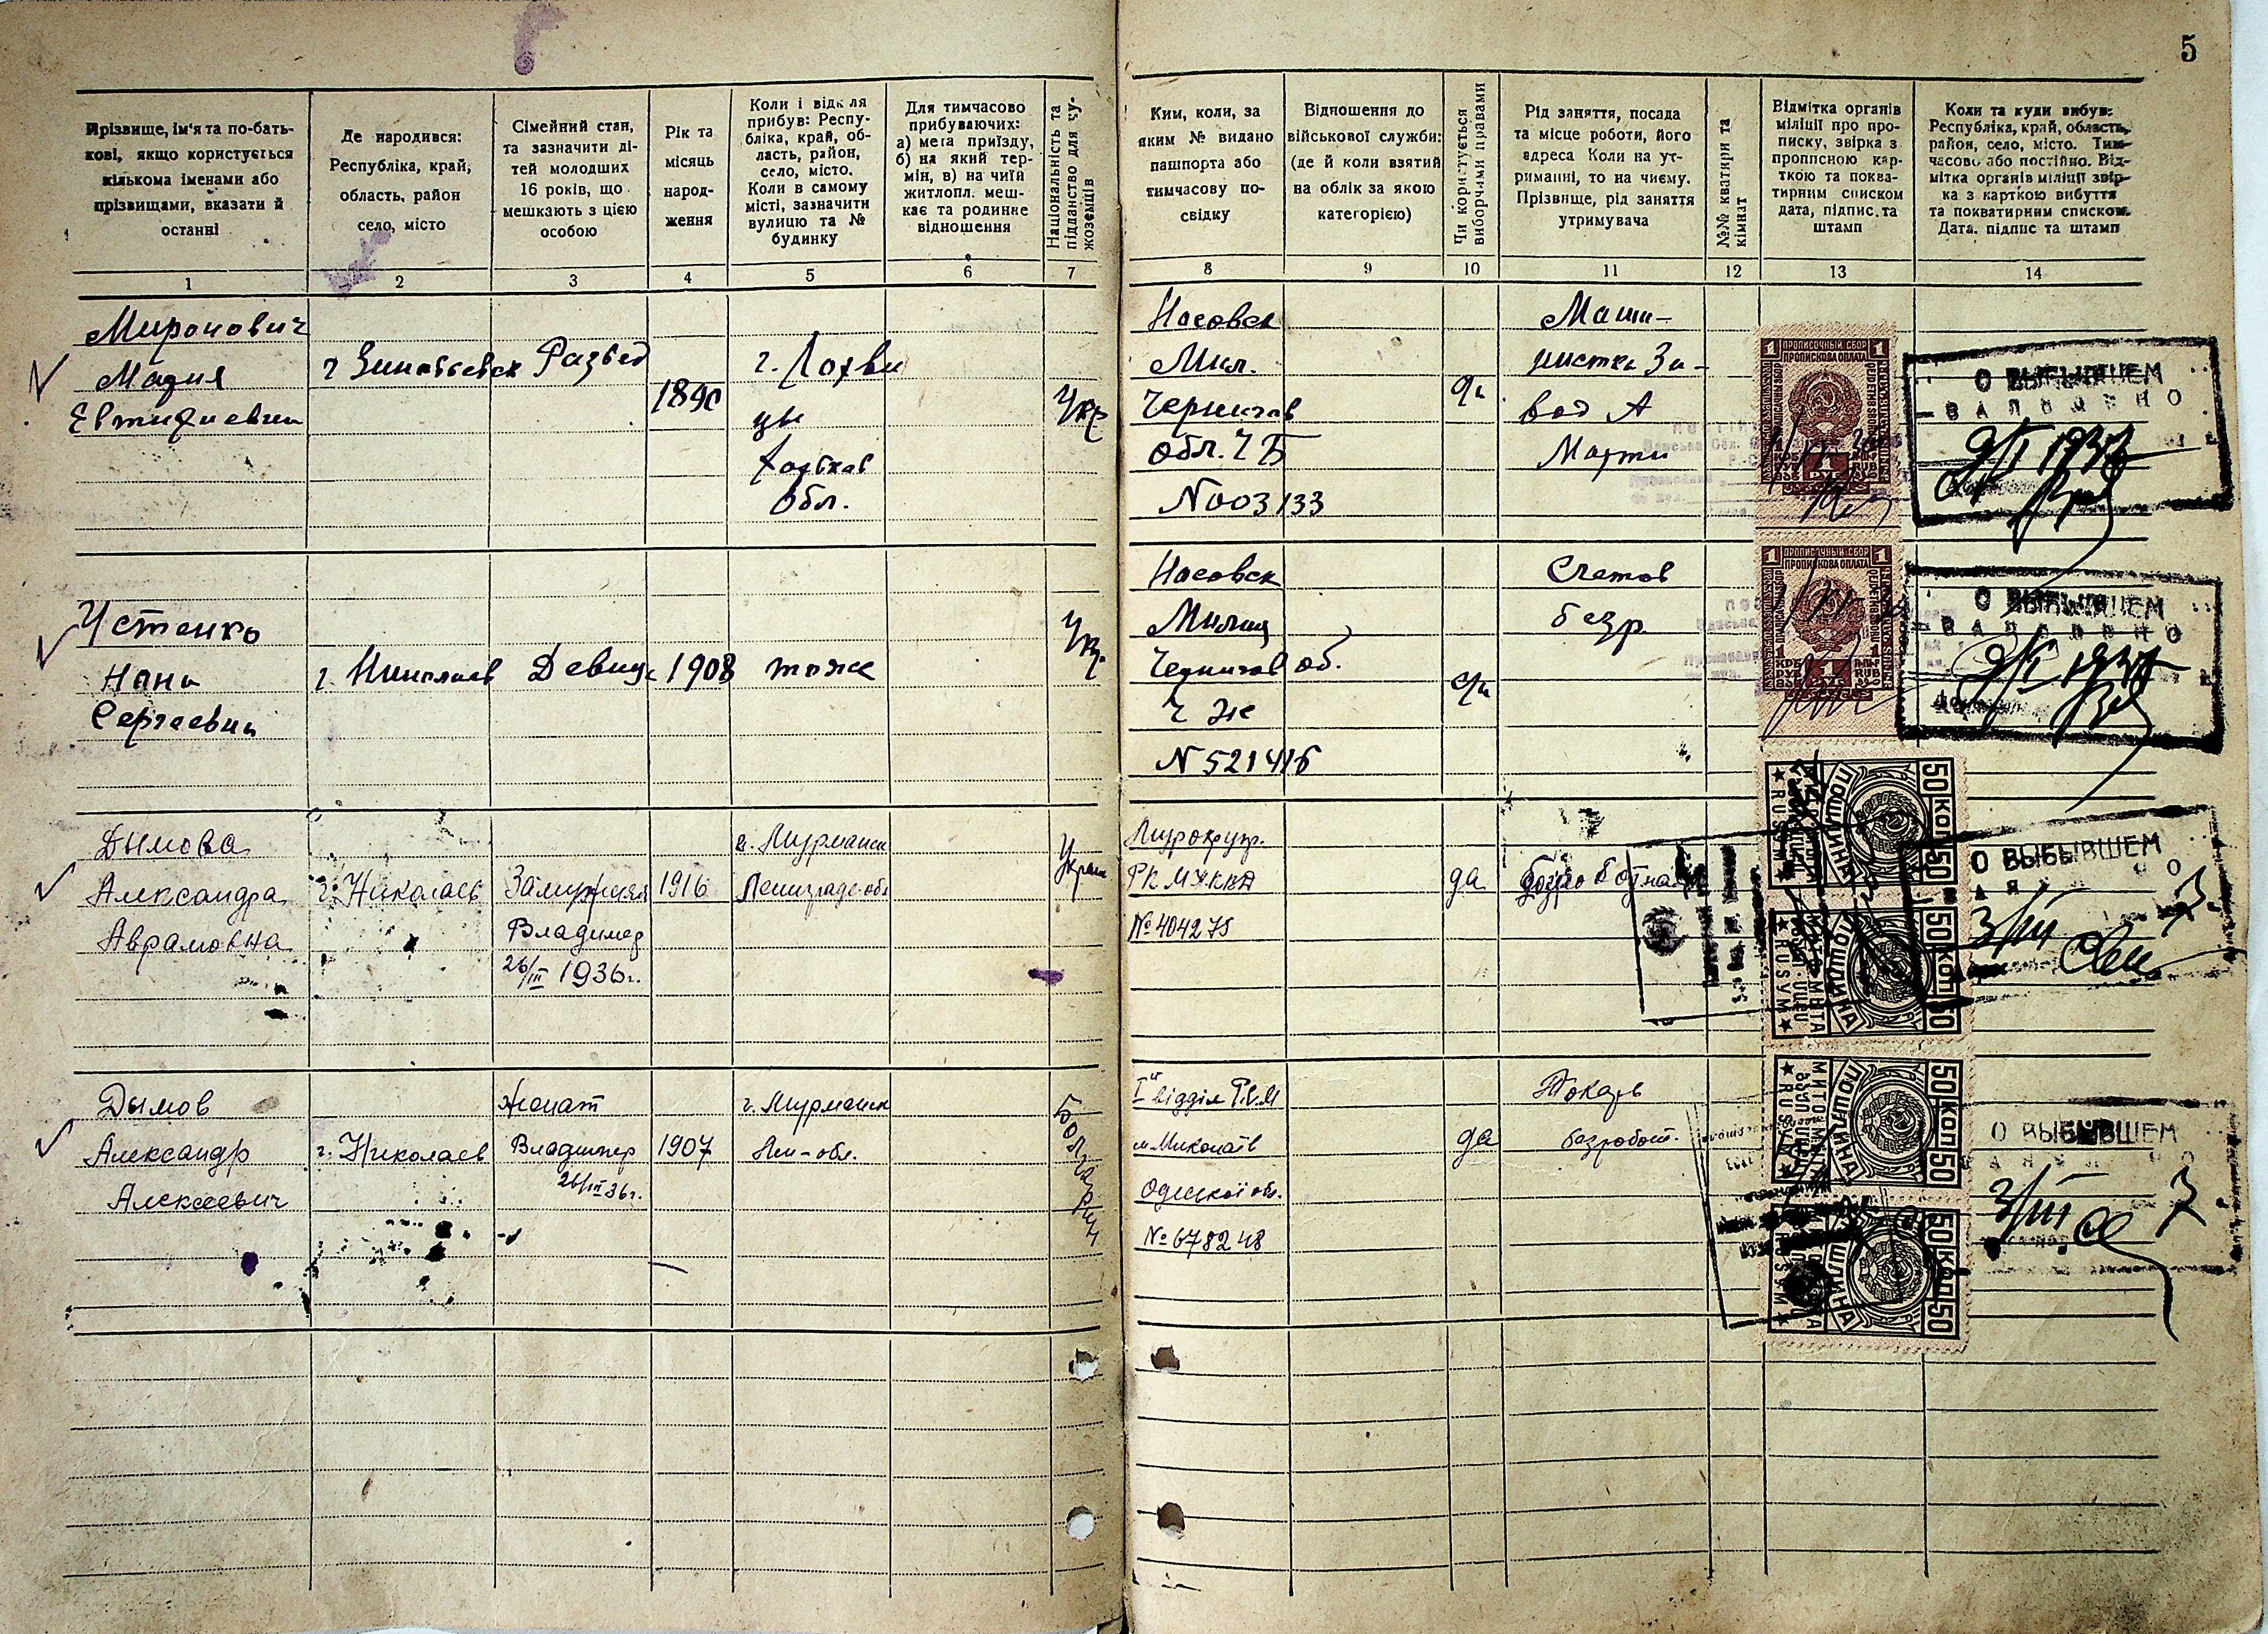 5
Прізвище, ім'я та по-бать-
кові, якщо користується
кількома іменами або
прізвищами, вказати й
останні
Де народився:
Республіка, край,
область, район
село, місто
Сімейний стан,
та зазначити ді-
тей молодших
16 років, що
мешкають з цією
особою
Рік та
місяць
народ-
ження
Коли і відкіля
прибув: Респу-
бліка, край, об-
ласть, район,
село, місто.
Коли в самому
місті, зазначити
вулицю та №
будинку
Для тимчасово
прибуваючих:
а) мета приїзду,
б) на який тер-
мін, в) на чиїй
житлопл. меш-
кає та родинне
відношення
Національність та
підданство для чу-
жоземців
Ким, коли, за
яким № видано
пашпорта або
тимчасову по-
свідку
Відношення до
військової служби:
(де й коли взятий
на облік за якою
категорією)
Чи користується
виборчими правами
Рід заняття, посада
та місце роботи, його
адреса Коли на ут-
риманні, то на чиєму.
Прізвище, рід заняття
утримувача
№№ кватири та
кімнат
Відмітка органів
міліції про про-
писку, звірка з
прописною кар-
ткою та поква-
тирним списком
дата, підпис та
штамп
Коли та куди вибув:
Республіка, край, область,
район, село, місто. Тим-
часово або постійно. Від-
мітка органів міліції звір-
ка з карткою вибуття
та покватирним списком.
Дата, підпис та штамп
1 2 3 4 5 6 7 8 9 10 11 12 13 14
Миронович
Мария
г
Развед
1890
г. Лохви
цы
Харьков
Обл.
Укр
Носовск
Мил.
Чернигов
обл. ЧБ
N003133
да
Маши-
нистка За-
вод А
Марти
1 ПРОПИСОЧНЫЙ СБОР 1
ПРОПИСКОВА ОПЛАТА
1 РУБ
О ВЫБЫВШЕМ
ЗАЯВЛЕНО
Устенко
Нана
Сергеевна
г. Николаев
Девица
1908
тоже
Укр.
Носовск
Милиц
Чернигов об.
Ч Же
N 521416
да
Счетов
безр.
1 ПРОПИСОЧНЫЙ СБОР 1
ПРОПИСКОВА ОПЛАТА
1 РУБ
О ВЫБЫВШЕМ
ЗАЯВЛЕНО
Дымова
Александра
Аврамовна
г. Николаев
Замужняя
Владимер
26/III 1936г.
1916
г. Мурманск
Ленинград-обл
Украин
РКМ УНКВД
№ 404275
да
50 КОП 50
ПОШЛИНА
RUSYM
50 КОП 50
ПОШЛИНА
МИТО
RUSYM
О ВЫБЫВШЕМ
3/III
Дымов
Александр
Алексеевич
г. Николаев
Женат
Владимер
26/III 36г.
1907
г. Мурманск
Лен-обл.
Болгарин
I відділ Р.С.М
м. Миколаїв
Одеської обл.
№ 678248
да
Токарь
безработ.
50 КОП 50
ПОШЛИНА
МИТО
RUSYM
50 КОП 50
ПОШЛИНА
О ВЫБЫВШЕМ
3/III